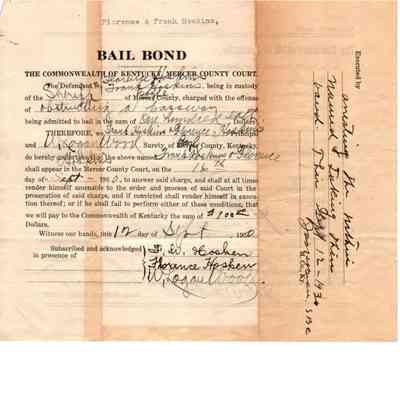 Florence & Frank Hoskins,
BAIL BOND
THE COMMONWEALTH OF KENTUCKY, MERCER COUNTY COURT.
The Defendant Florence Hoskins
Frank Hoskins being in custody
of the of Mercer County, charged with the offense
of obstructing a
being admitted to bail in the sum of One hundred
THEREFORE, We Frank Hoskins & Florence Hoskins
and W. Logan Wood Surety, of County,
do hereby undertake the above named Frank Hoskins & Florence
Hoskins
shall appear in the Mercer County Court, on the 16 th
day of Sept 1930, to answer said charge, and shall at all times
render himself amenable to the order and process of said Court in the
prosecution of said charge, and if convicted shall render himself in execu-
tion thereof; or if he shall fail to perform either of these conditions, that
we will pay to the Commonwealth of Kentucky the sum of $100
Dollars.
Witness our hands, this 12 day of Sept 1930
Subscribed and acknowledged
in presence of
F. W. Hosken
Florence Hosken
W. Logan Wood
Executed by
arresting the within
named & taking
bond This Sept 12 - 1930